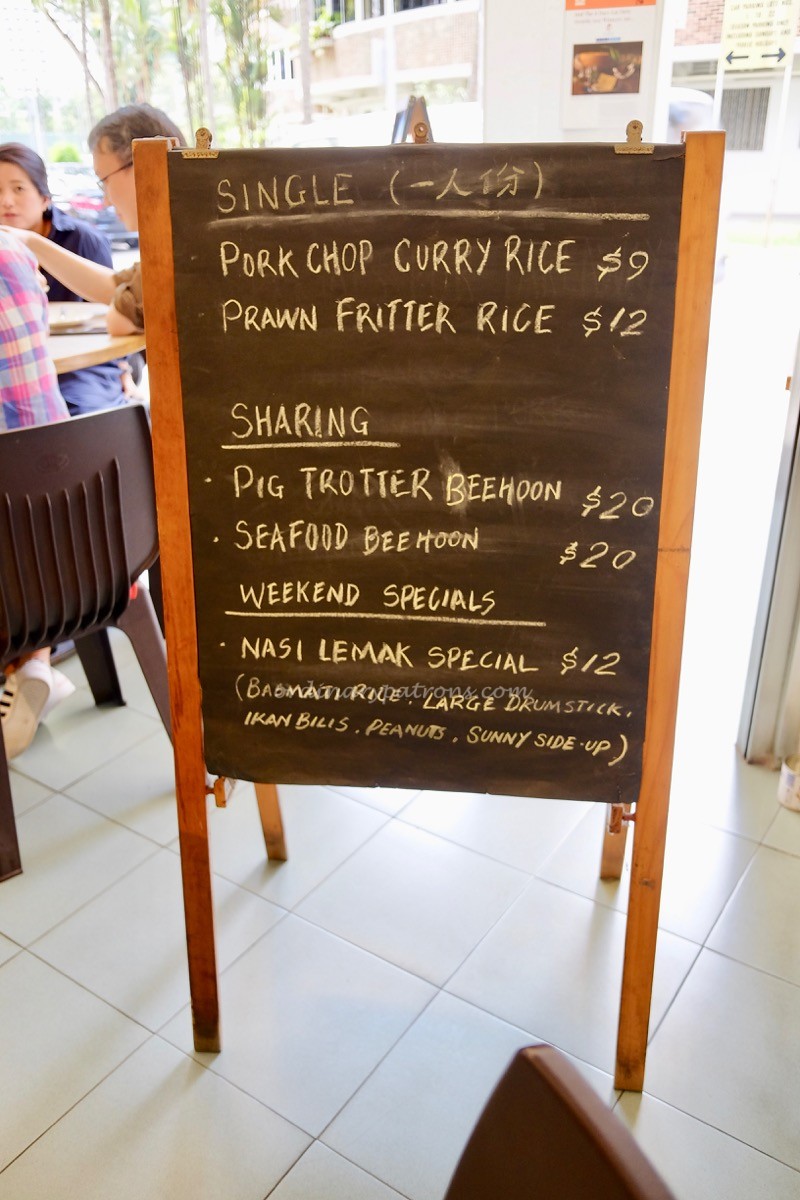 SINGLE (一人份)
PORK CHOP CURRY RICE $9
PRAWN FRITTER RICE $12
SHARING
· PIG TROTTER BEEHOON $20
· SEAFOOD BEEHOON $20
WEEKEND SPECIALS
· NASI LEMAK SPECIAL $12
(BASMATI RICE. LARGE DRUMSTICK,
IKAN BILIS. PEANUTS. SUNNY SIDE-UP)
ordinarypatrons.com